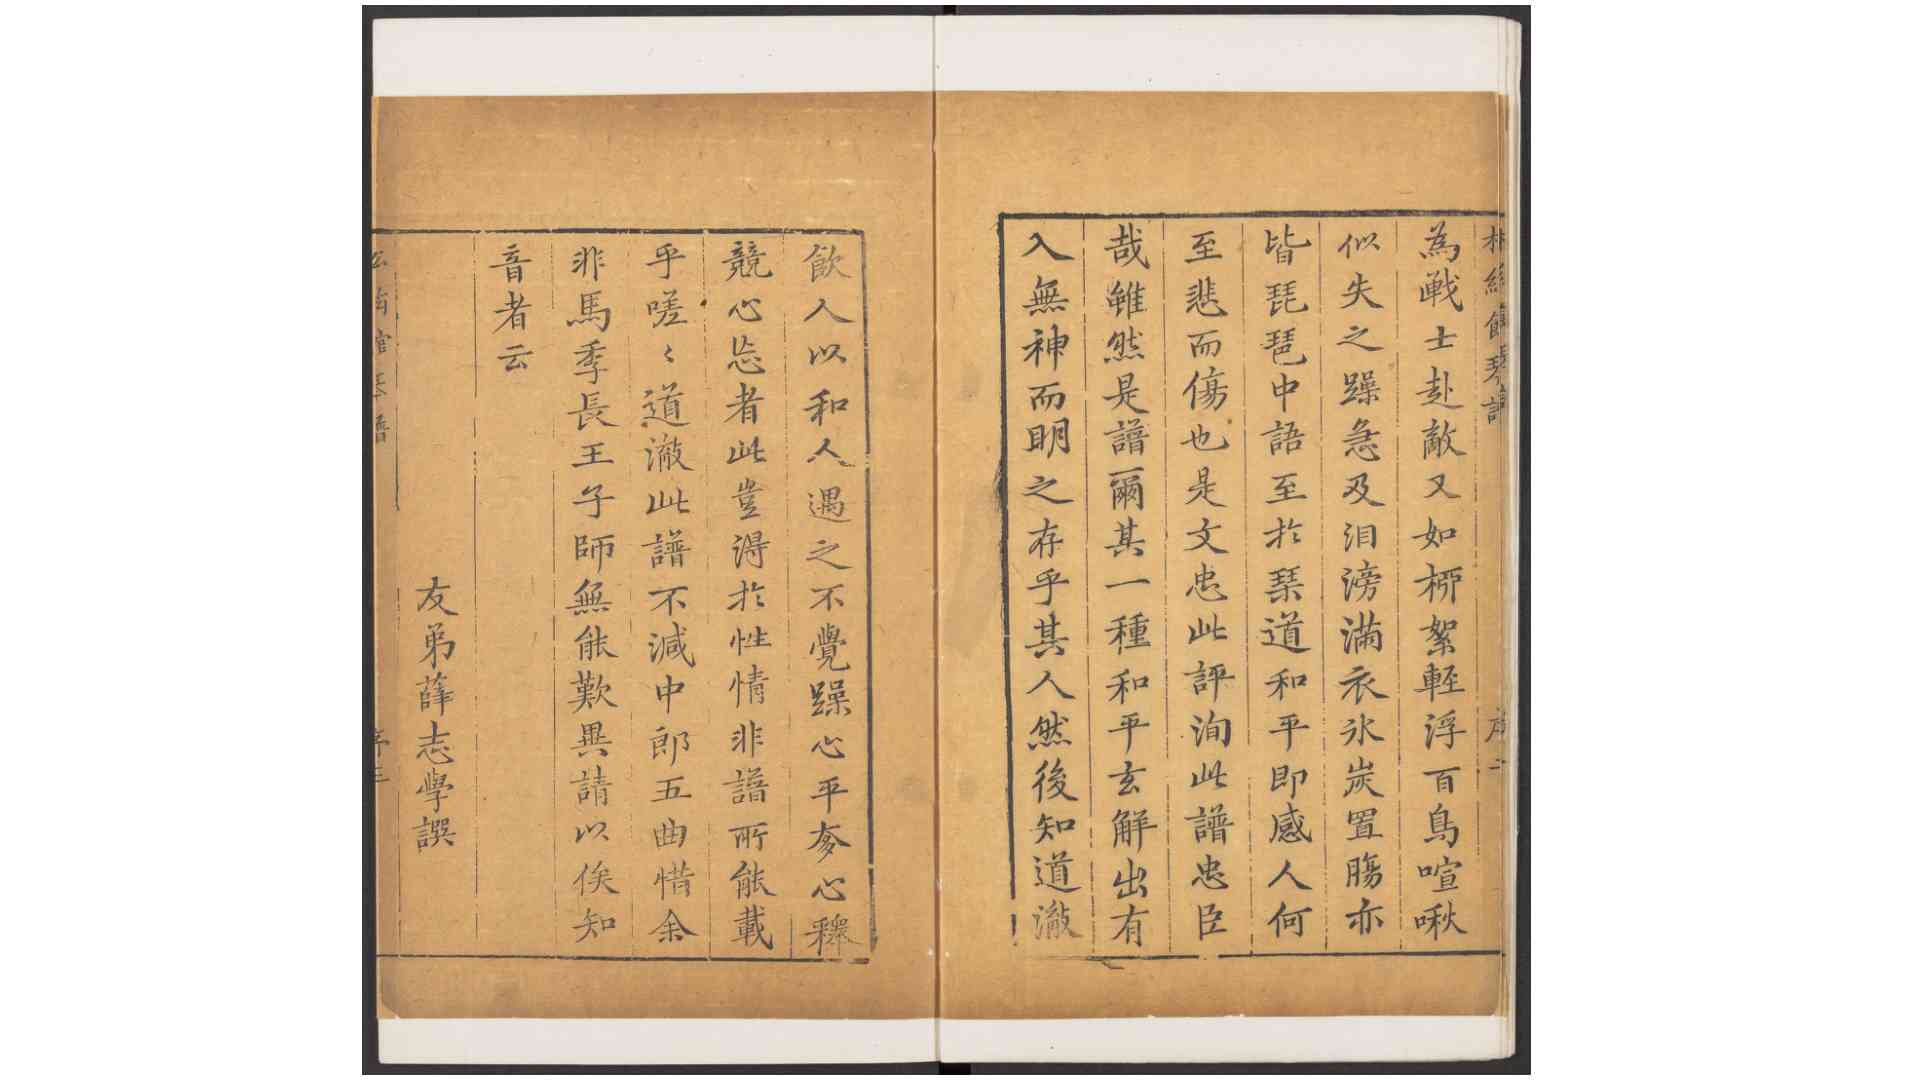 為戰士赴敵又如栁絮輕浮百鳥喧啾
似失之躁急及泪滂滿衣氷炭置腸亦
皆琵琶中語至扵琹道和平即感人何
至悲而傷也是文忠此評洵此譜忠臣
哉雖然是譜爾其一種和平玄解出有
入無神而明之存乎其人然後知道澈
飲人以和人遇之不覺躁心平矜心釋
競心㤀者此豈淂扵性情非譜所能載
乎嗟〻道澈此譜不減中郎五曲惜余
非馬季長王子師無能歎異請以俟知
音者云
友弟薛志學譔
序三